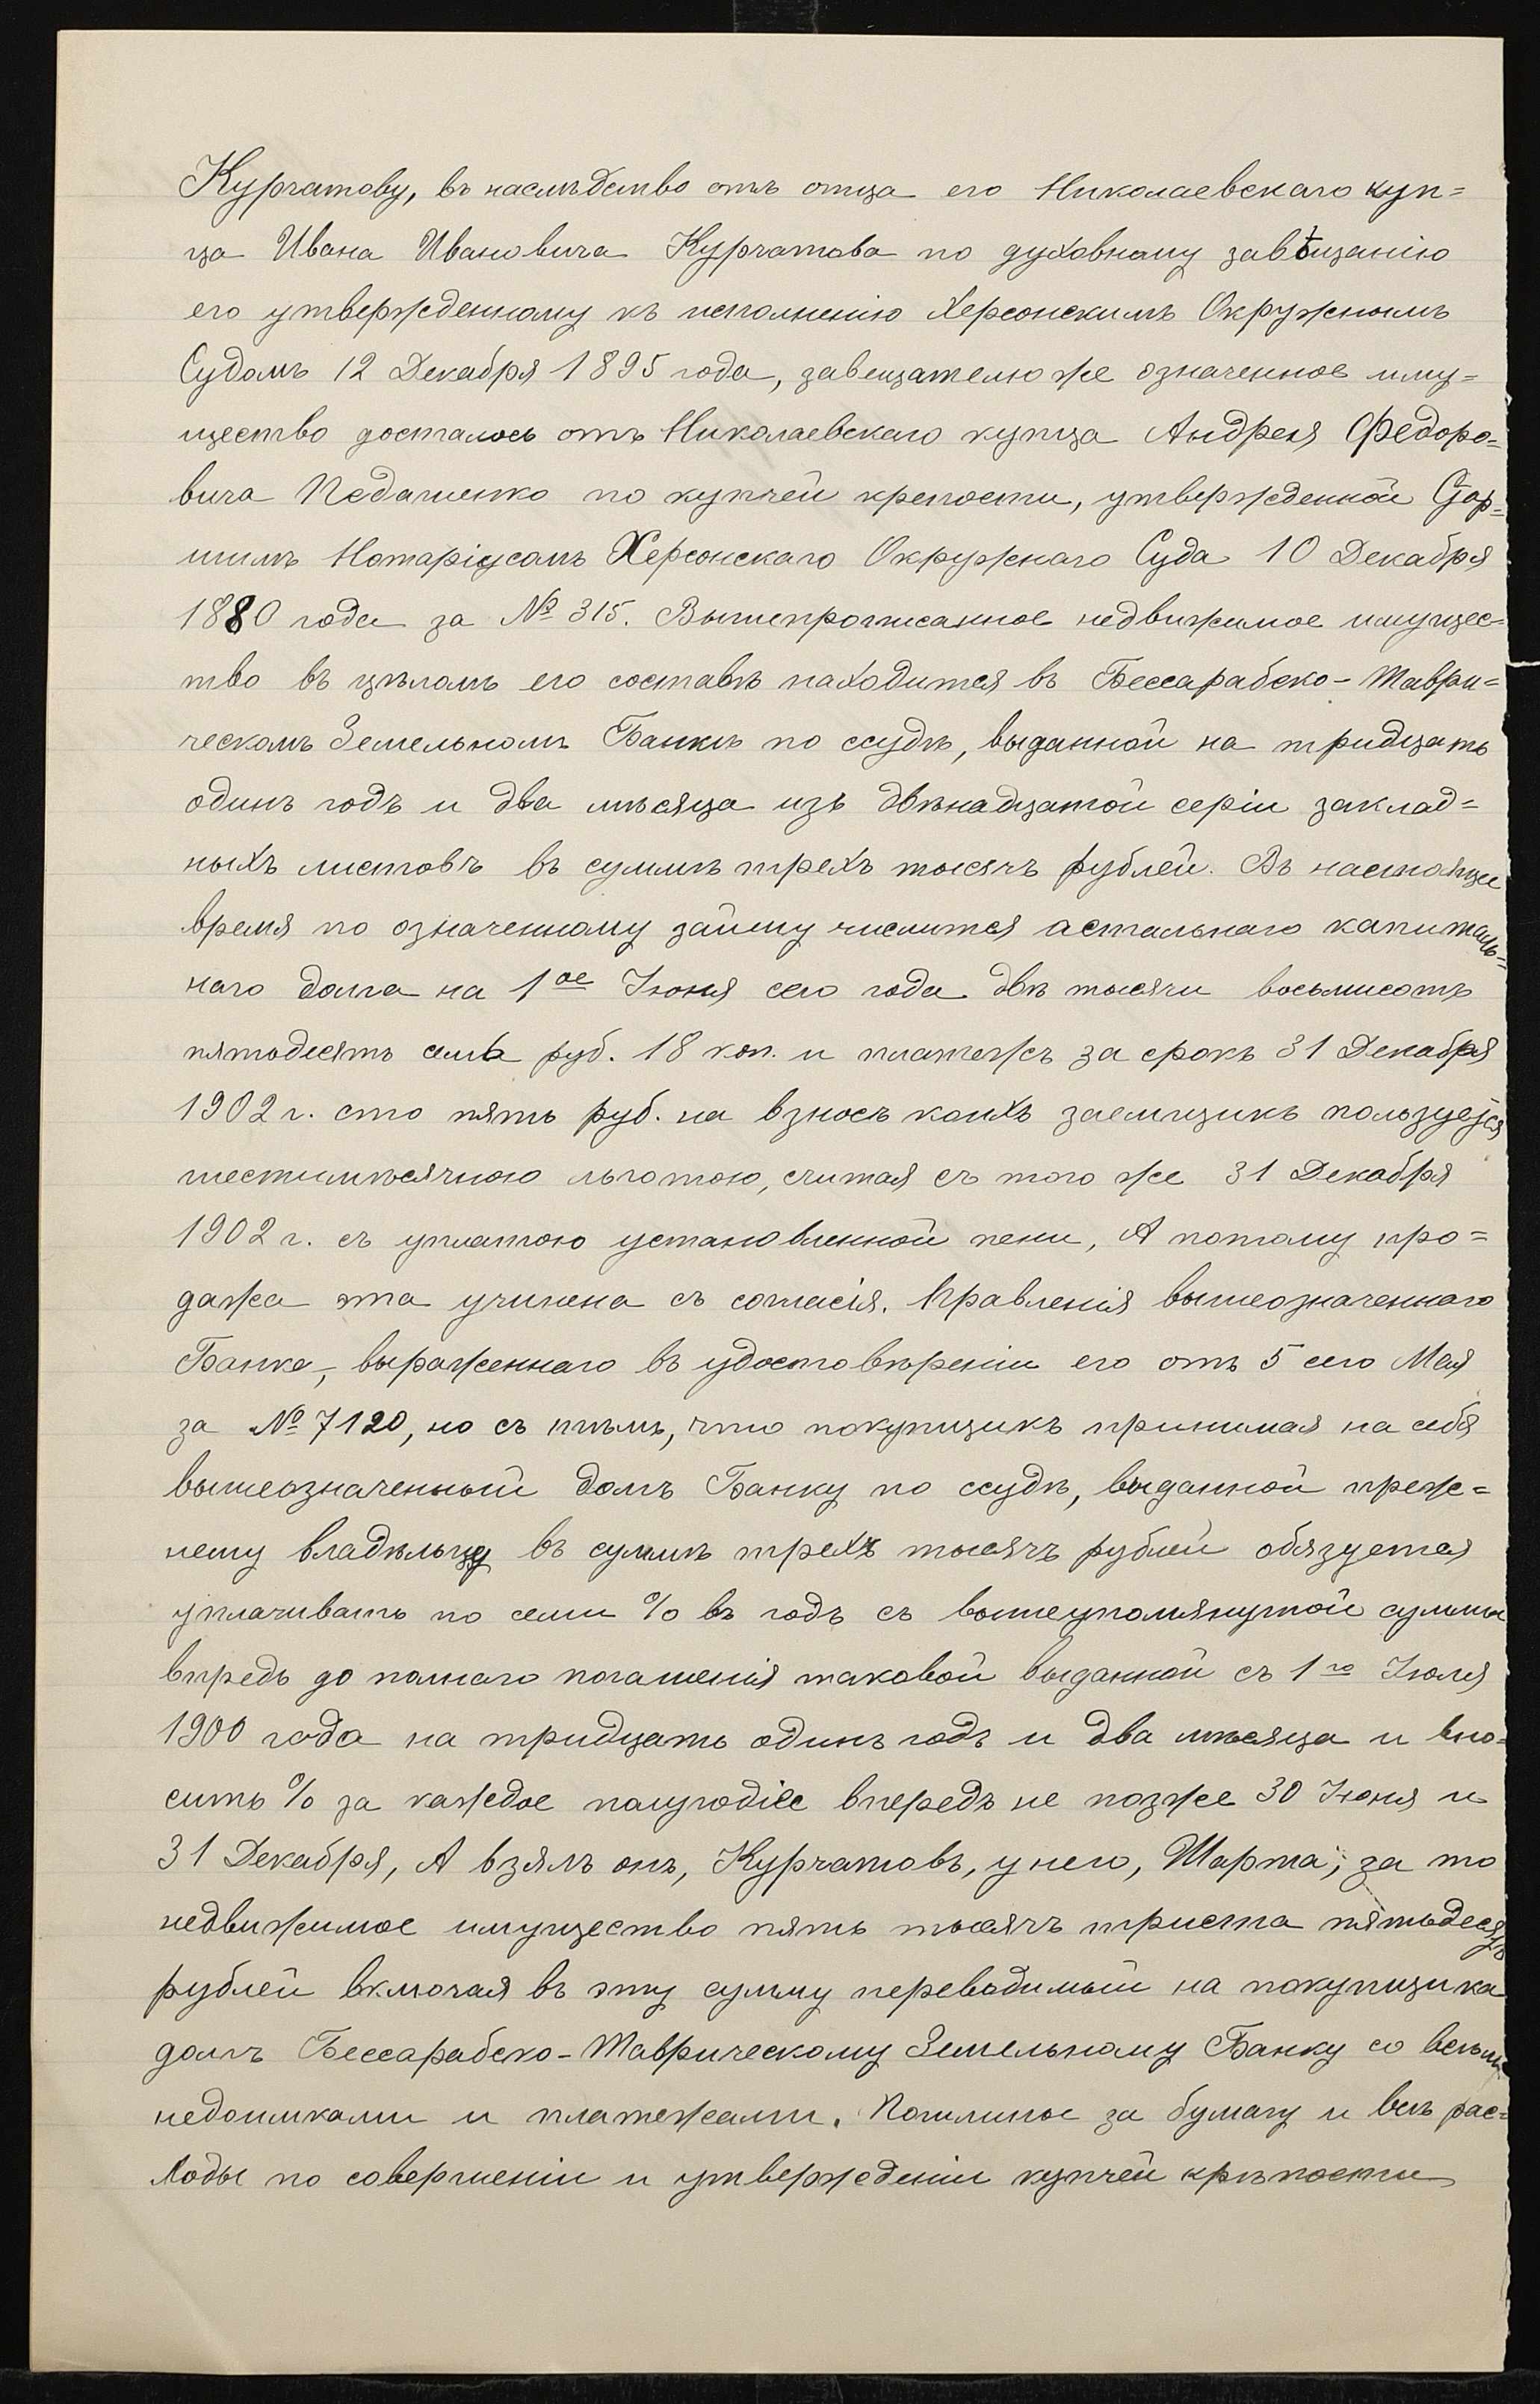 Курчатову, въ наслѣдство отъ отца его Николаевскаго куп=
ца Ивана Ивановича Курчатова по духовному завѣщанію
его утвержденному къ исполненію Херсонскимъ Окружнымъ
Судомъ 12 Декабря 1895 года, завещателю же означенное иму=
щество досталось отъ Николаевскаго купца Андрея Федоро=
вича Педашенко по купчей крепости, утвержденной Стар=
шимъ Нотаріусомъ Херсонскаго Окружнаго Суда 10 Декабря
1880 года за № 315. Вышепрописанное недвижимое имущес=
тво въ цѣломъ его составѣ находится въ Бессарабско-Таври=
ческомъ Земельномъ Банкѣ по ссудѣ, выданной на тридцать
одинъ годъ и два мѣсяца изъ двѣнадцатой серіи заклад=
ныхъ листовъ въ суммѣ трехъ тысячъ рублей. Въ настоящее
время по означенному займу числится остальнаго капиталь=
наго долга на 1ое Іюня сего года двѣ тысячи восьмисотъ
пятьдесятъ семь руб. 18 коп. и платежъ за срокъ 31 Декабря
1902 г. сто пять руб. на взносъ коихъ заемщикъ пользуется
шестимѣсячною льготою, считая съ того же 31 Декабря
1902 г. съ уплатою установленной пени, А потому про=
дажа эта учинена съ согласія. Правленія вышеозначеннаго
Банка, выраженнаго въ удостовѣреніи его отъ 5 сего Мая
за № 7120, но съ тѣмъ, что покупщикъ принимая на себя
вышеозначенный долгъ Банку по ссудѣ, выданной преж=
нему владѣльцу въ суммѣ трехъ тысячъ рублей обязуется
уплачивать по семи % въ годъ съ вышеупомянутой суммы
впредь до полнаго погашенія таковой выданной съ 1го Іюля
1900 года на тридцать одинъ годъ и два мѣсяца и вно=
сить % за каждое полугодіе впередъ не позже 30 Іюня и
31 Декабря, А взялъ онъ, Курчатовъ, у него, Шарта, за то
недвижимое имущество пять тысячъ триста пятьдесятъ
рублей включая въ эту сумму переводимый на покупщика
долгъ Бессарабско-Таврическому Земельному Банку со всѣми
недоимками и платежами. Пошлины за бумагу и всѣ рас=
ходы по совершеніи и утвержденіи купчей крѣпости